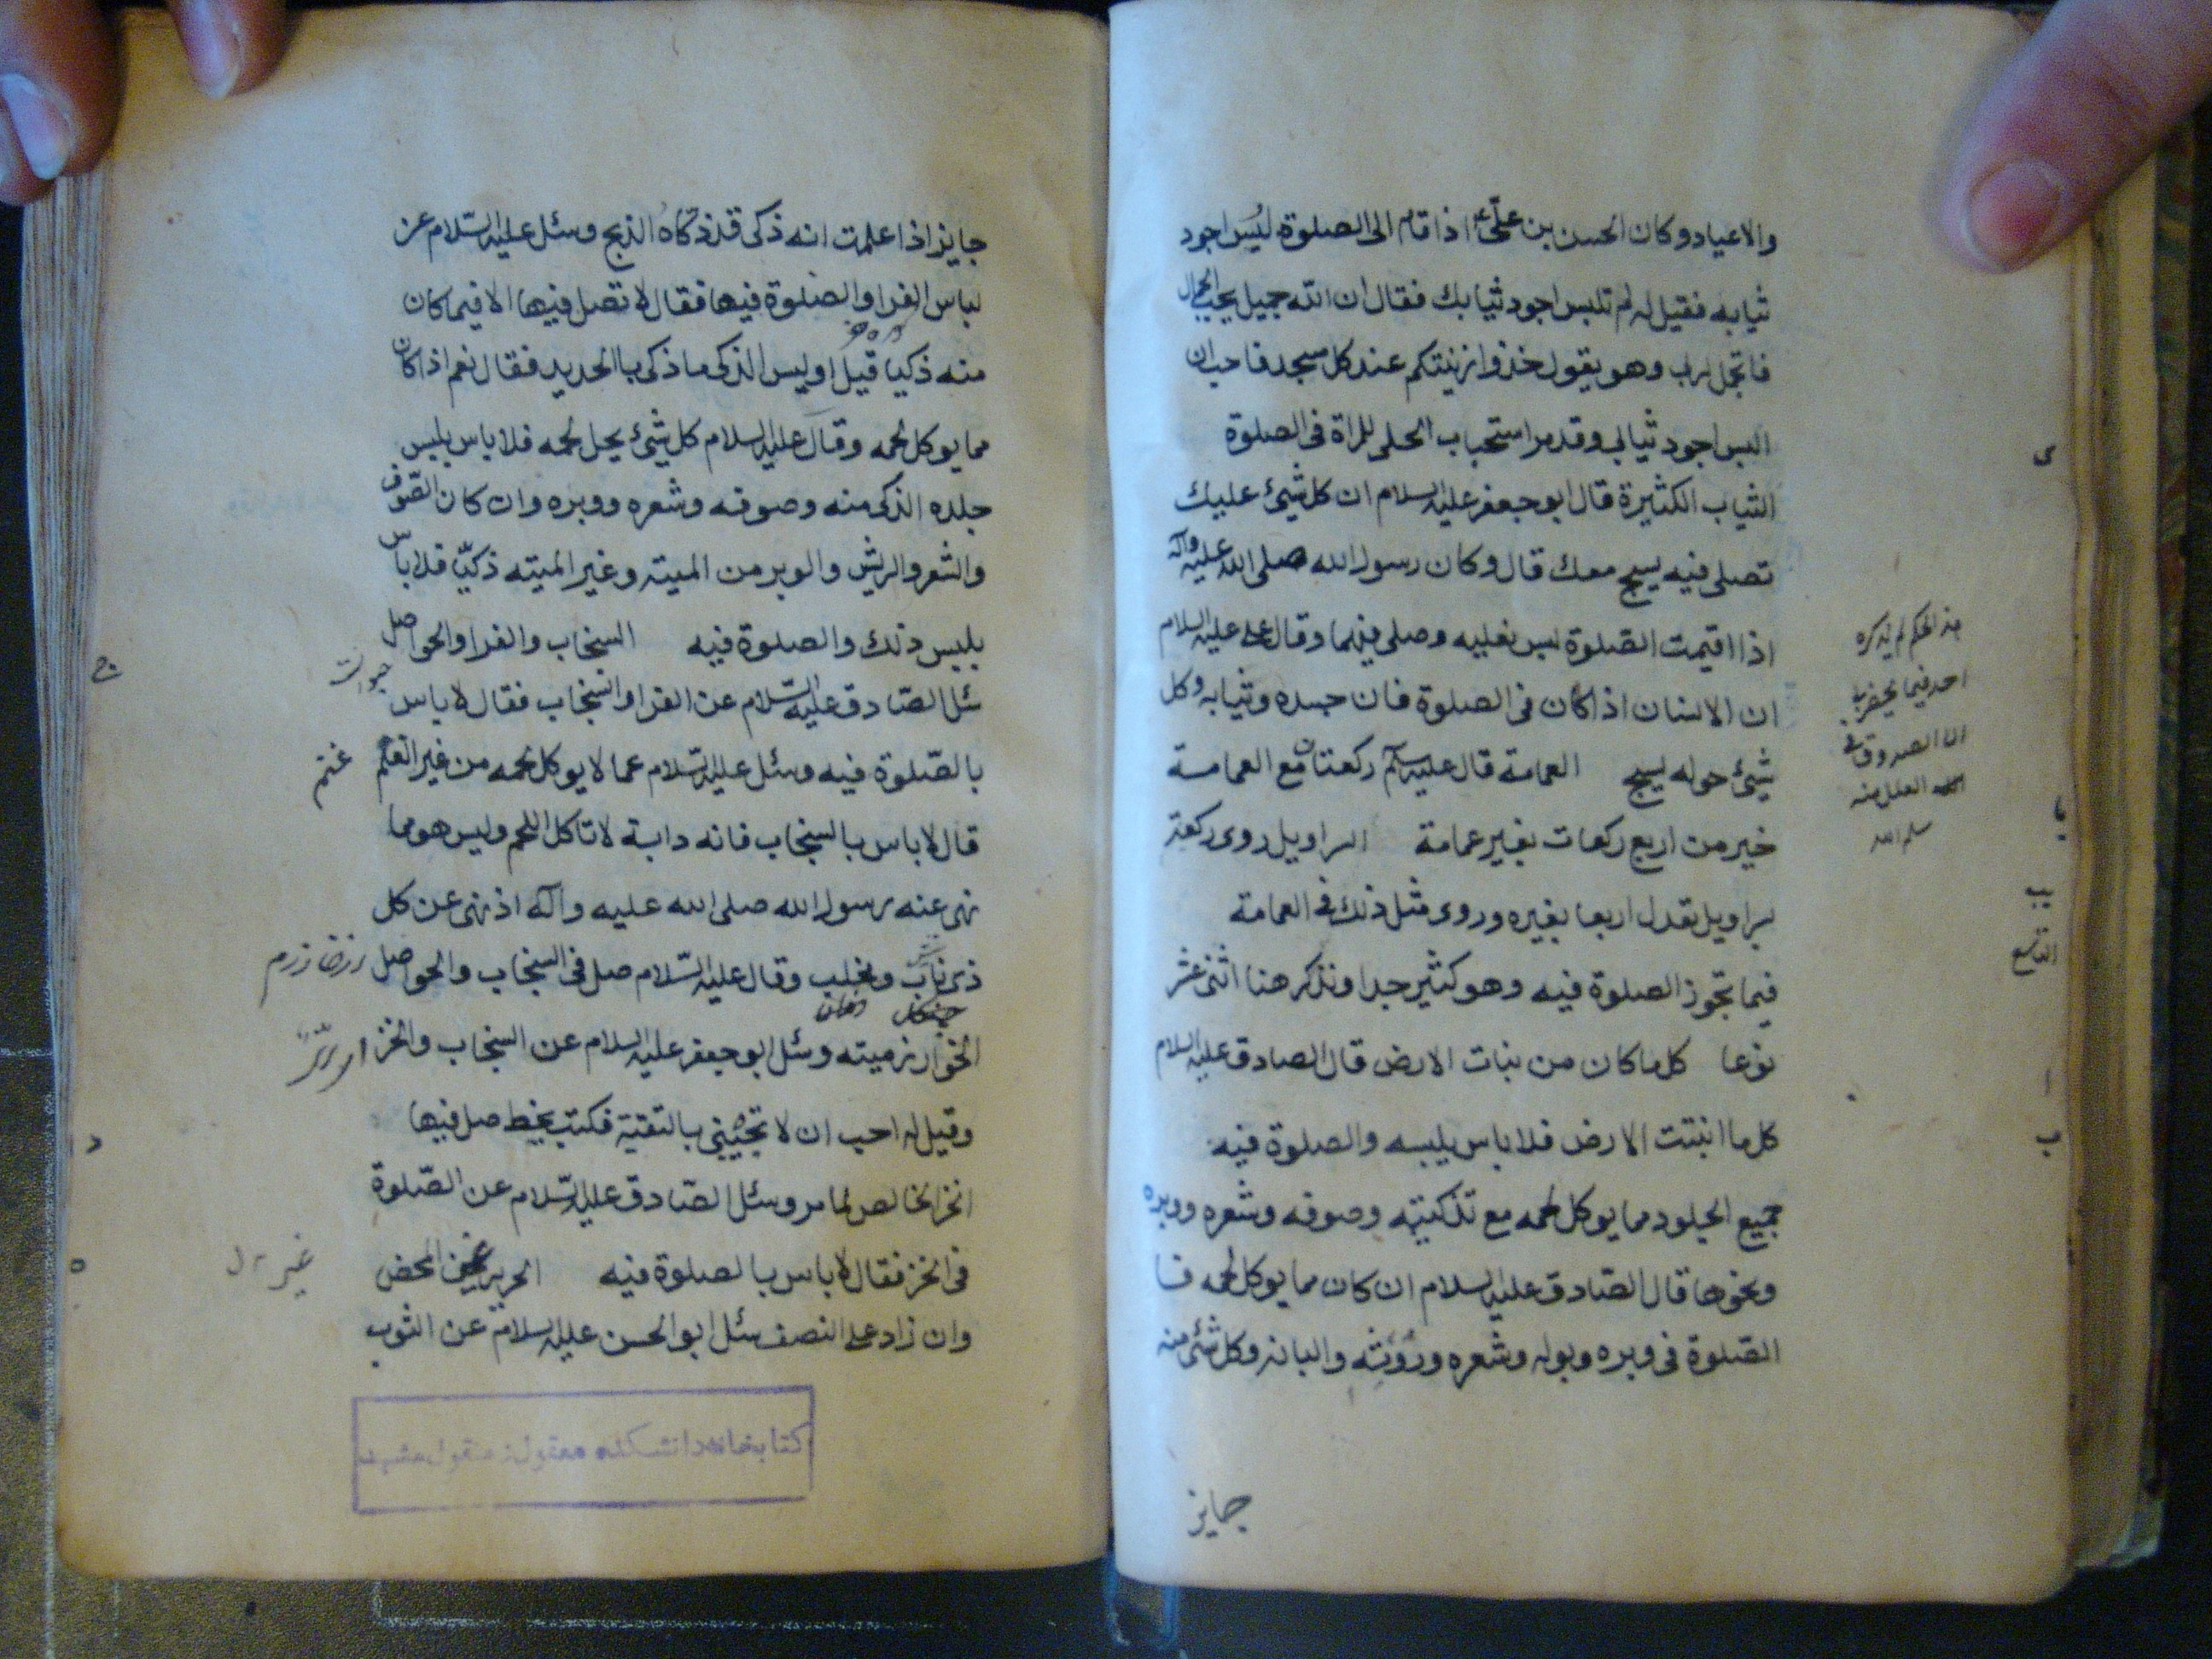 والاعياد وكان الحسن بن علىّ ع اذا قام الى الصلوة لبُس اجود
ثيابه فقيل له لم تلبس اجود ثيابك فقال ان الله جميل يحب الجمال
فاتجمل لربى وهو يقول خذوا زينتكم عند كل مسجد فاحب ان
البس اجود ثيابى وقد مر استحباب الحلى للمراة فى الصلوة
الثياب الكثيرة قال ابو جعفر عليه السلام ان كل شيئ عليك
تصلى فيه يسبح معك قال وكان رسول الله صلى الله عليه وآله
اذا اقيمت الصّلوة لبس نعليه وصلى فيهما وقال على عليه السلام
ان الانسان اذا كان فى الصلوة فان جسده وثيابه وكل
شيئ حوله يسبح العمامة قال عليه السلم ركعتان مع العمامة
خير من اربع ركعات بغير عمامة السراويل روى ركعة
بسراويل تعدل اربعا بغيره وروى مثل ذلك فى العمامة
فيما تجوز الصلوة فيه وهو كثير جدا ونذكر هنا اثنى عشر
نوعا كلما كان من نبات الارض قال الصادق عليه السلام
كل ما انبتت الارض فلا باس بلبسه والصلوة فيه
جميع الجلود مما يوكل لحمه مع تذكيته وصوفه وشعره ووبره
ونحوها قال الصّادق عليه السلام ان كان مما يوكل لحمه فا
الصّلوة فى وبره وبوله وشعره وروثه والبانه وكل شئ منه
جايز
ى
هذا الحكم لم يذكره
احد فيما يحضرنى
الا الصدوق فى
العلل منه
سلمه الله
يا
يب
التاسع
ا
ب
جايز اذا علمت انه ذكى قد ذكّاهُ الذبح وسئل عليه السّلام عن
لباس الفراء والصّلوة فيها فقال لا تصل فيها الا فيما كان
منه ذكيا قيل اوليس الذكى ما ذكى بالحديد فقال نعم اذا كان
مما يوكل لحمه وقال عليه السلام كل شيئ يحل لحمه فلا باس بلبس
جلده الذكى منه وصوفه وشعره ووبره وان كان الصّوف
والشعر والريش والوبر من الميته وغير الميته ذكيّا فلا باس
بلبس ذلك والصلوة فيه السنجاب والفرا والحواصل
سئل الصّادق عليه السّلام عن الفرا والسّنجاب فقال لا باس
بالصّلوة فيه وسئل عليه السّلام عما لا يوكل لحمه من غير الغنم
قال لا باس بالسنجاب فانه دابة لا تاكل اللحم وليس هو مما
نهى عنه رسول الله صلى الله عليه وآله اذ نهى عن كل
ذى ناب ومخلب وقال عليه السّلام صل فى السنجاب والحواصل
الخوارزميته وسئل ابو جعفر عليه السلام عن السنجاب والخز
وقيل له احب ان لا تجيبنى بالتقيّة فكتب بخطه صل فيها
الخز الخالص لما مر وسئل الصّادق عليه السّلام عن الصّلوة
فى الخز فقال لا باس بالصلوة فيه الحرير غير المحض
وان زاد على النصف سئل ابو الحسن عليه السلام عن الثوب
ج
غنم
د
ه
غير
كتابخانه دانشكده معقول و منقول مشهد